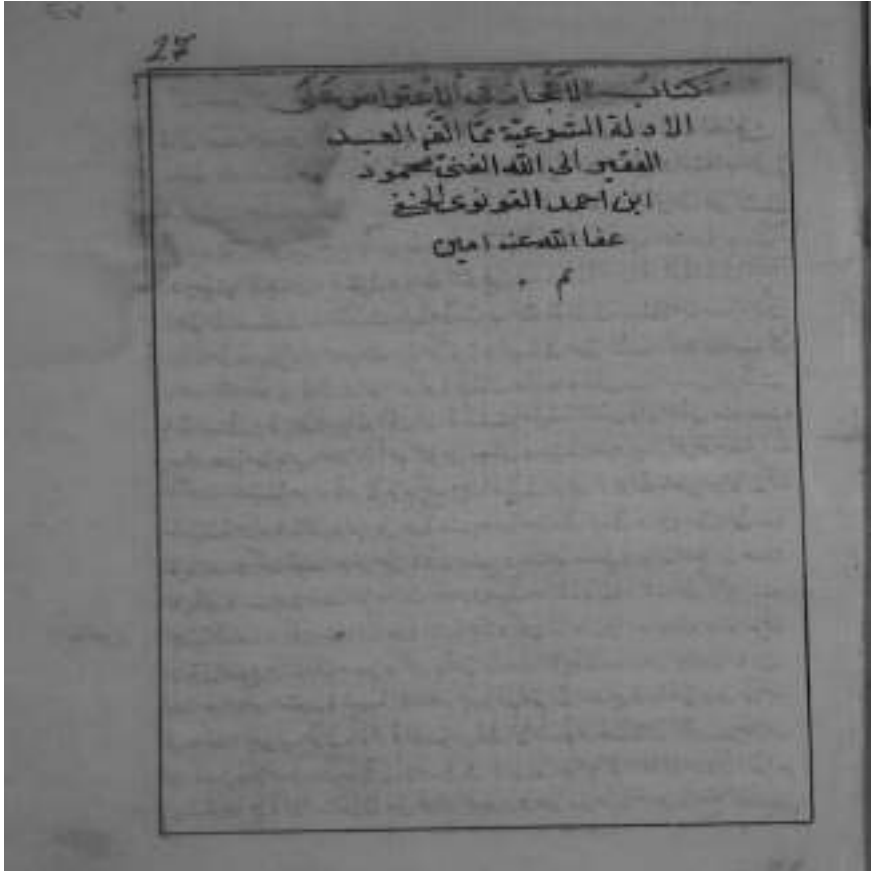 27
كتاب الاعجاز في الاعتراض على
الادلة الشرعية مما الفه العبد
الفقير الى الله الغني محمود
ابن احمد القونوى الحنفي
عفا الله عنه امين
تم